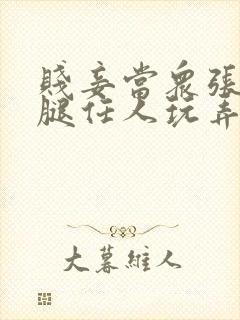 賤妾當眾張
腿任人玩弄
大幕維人